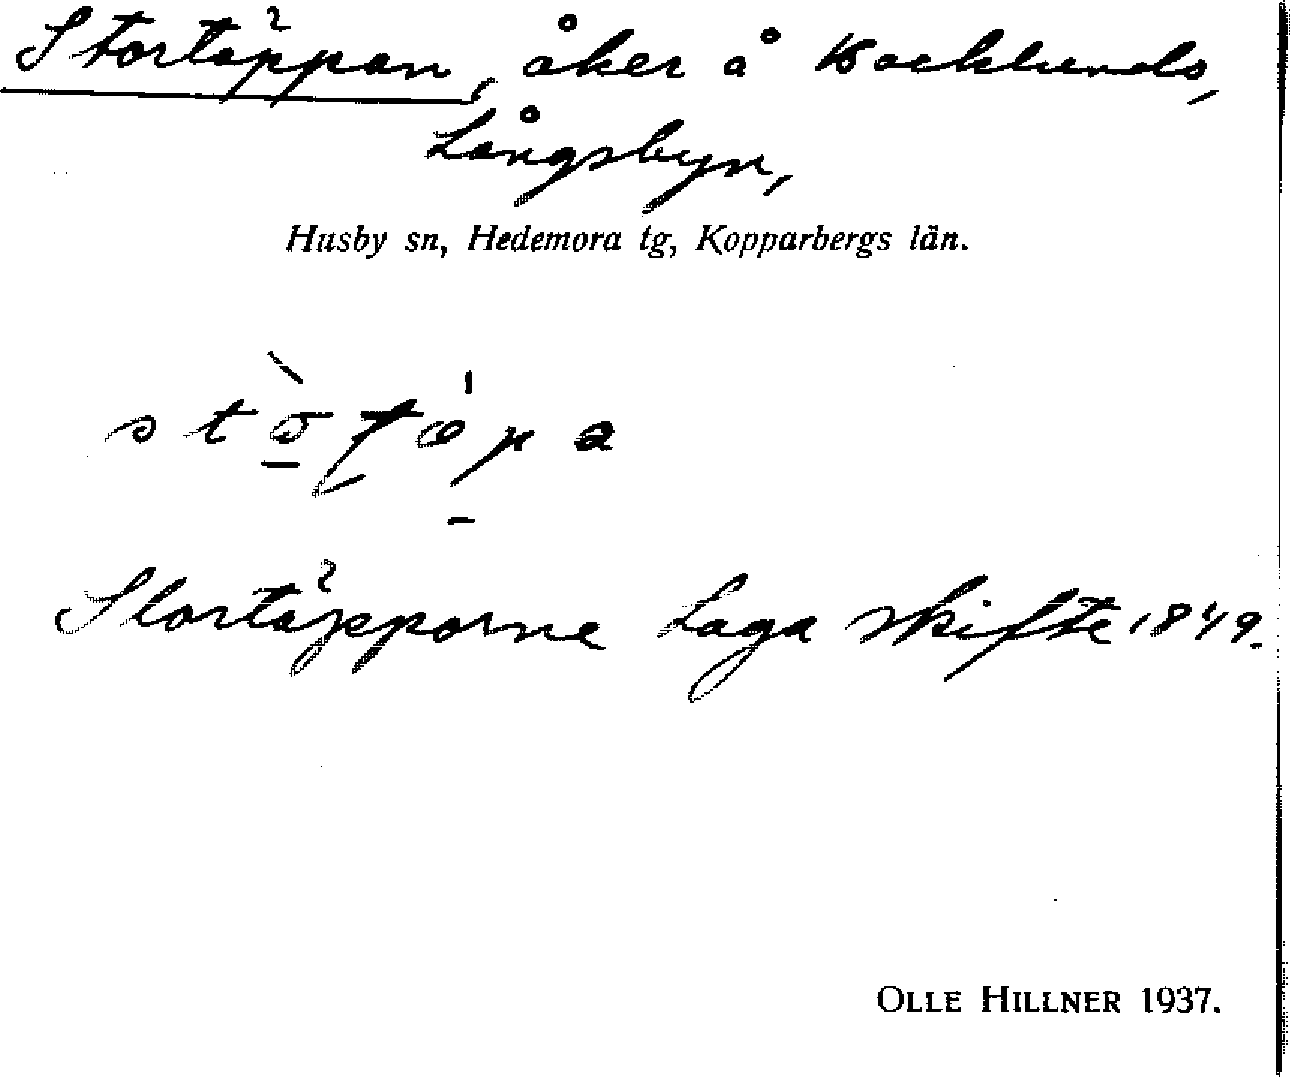 Stortäppan, åker å Backlunds,
Långsbyn,
Husby sn, Hedemora tg, Kopparbergs län.
Stortäpporne Laga skifte 1849.
OLLE HILLNER 1937.